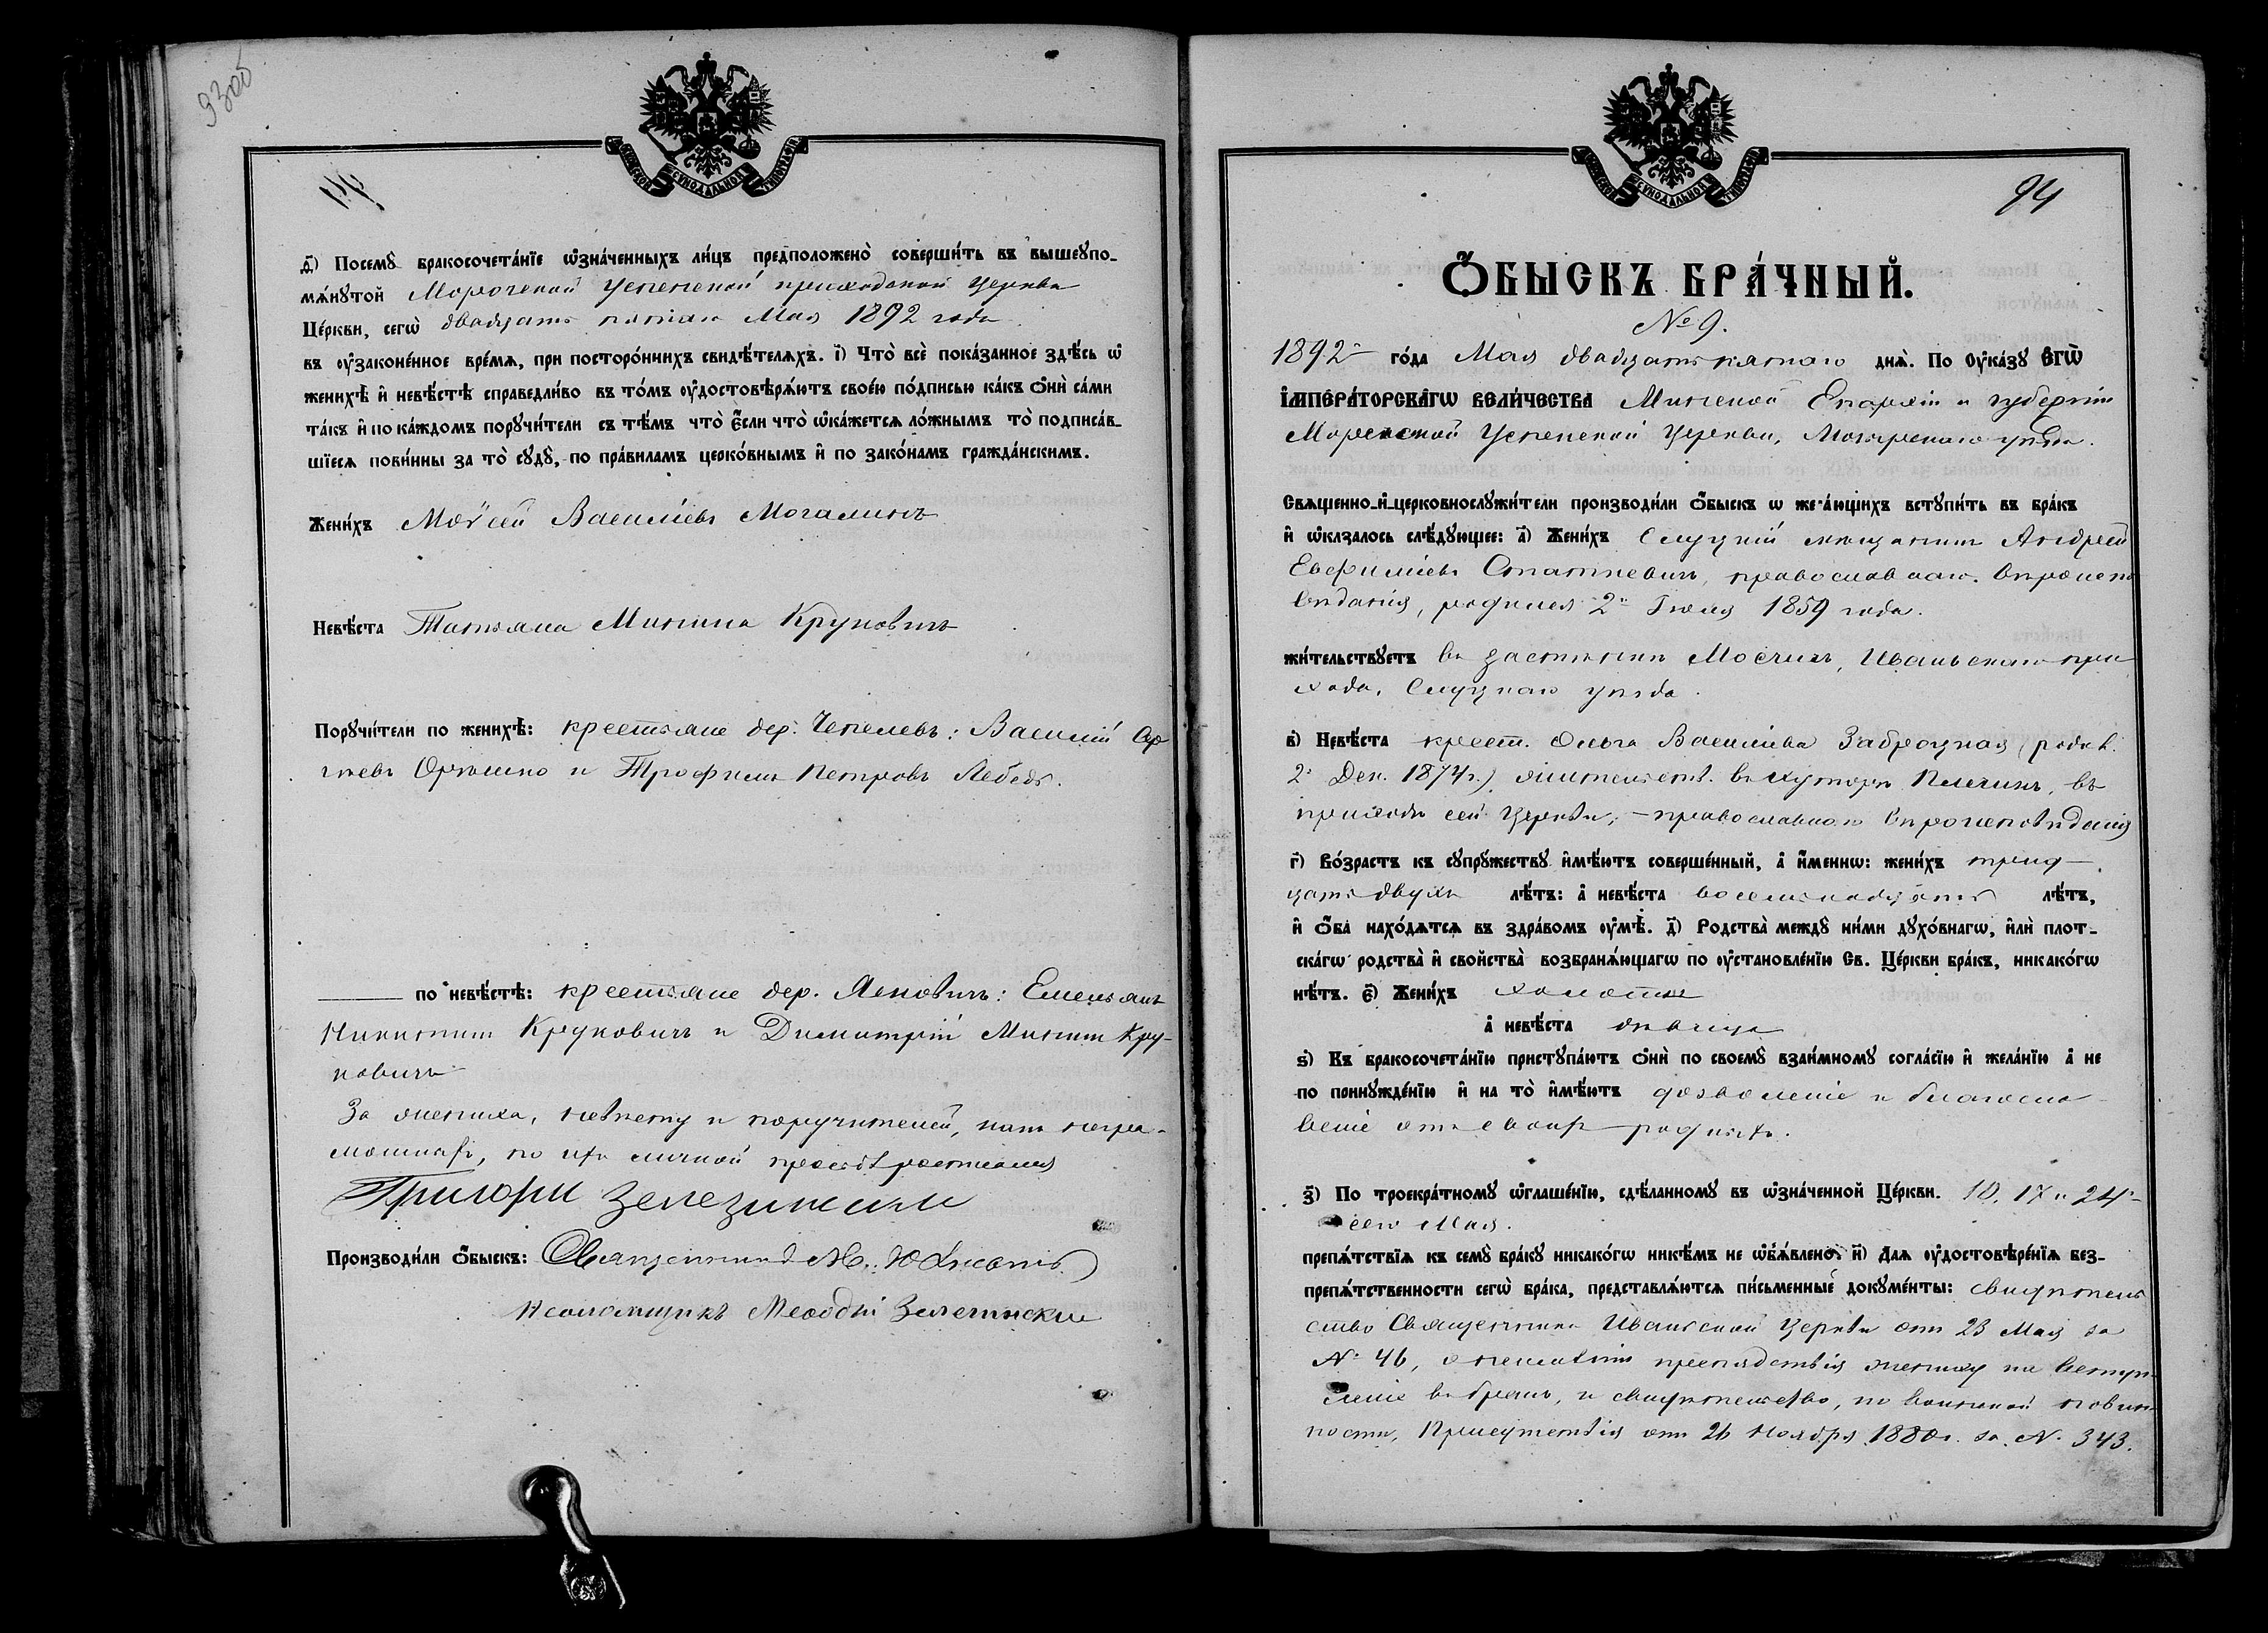 93об
СѴНОДАЛЬНОЙ ТИПОГРАФІИ
ѳ҃) Посемꙋ̀ бракосочета́нїе ѡ҆зна́ченныхъ ли́цъ предположено̀ соверши́ть въ вышеꙋпо-
мѧ́нꙋтой Мороченой Успенской приходской Церкви
Це́ркви, сегѡ̀ двадцать пятаго Мая 1892 года
въ ᲂу҆законе́нное вре́мѧ, при посторо́ннихъ свидѣ́телѧхъ. і҃) Что̀ всѐ пока́занное здѣ́сь ѡ҆
женихѣ̀ и҆ невѣ́стѣ справедли́во въ то́мъ ᲂу҆достовѣрѧ́ютъ свое́ю по́дписью ка́къ ѻ҆нѝ са́ми
та́къ и҆ по ка́ждомъ порꙋчи́тели съ тѣ́мъ что̀ є҆́сли что̀ ѡ҆ка́жетсѧ ло́жнымъ то̀ подписа́в-
шїесѧ пови́нны за то̀ сꙋдꙋ̀, по пра́виламъ церко́внымъ и҆ по зако́намъ гражда́нскимъ.
Жени́хъ Моѵсей Васильевъ Могалинъ
Невѣ́ста Татьяна Минина Круковичъ
Порꙋчи́тели по женихѣ̀: крестьяне дер. Чепелевъ: Василій Сер
гѣевъ Орѣшко и Трофимъ Петровъ Лебедь.
по невѣ́стѣ: крестьяне дер. Ясковичъ: Емельянъ
Никитинъ Круковичъ и Димитрій Мининъ Кру-
ковичъ
За жениха, невѣсту и поручителей, какъ негра-
мотныхъ, по ихъ личной просьбѣ росписался
Григори Зелезински
Производи́ли ѻ҆́быскъ: Священникъ М.
Псаломщикъ Меѳодій Зелезински
94
СѴНОДАЛЬНОЙ ТИПОГРАФІИ
Ѻ҆́БЫСКЪ БРА́ЧНЫЙ.
№ 9.
1892 го́да Мая двадцать пятаго днѧ̀. По Оу҆ка́зꙋ Є҆ГѠ̀
І҆МПЕРА́ТОРСКАГѠ ВЕЛИ́ЧЕСТВА Минской Епархіи и губерніи
Морочской Успенской Церкви, Мозырскаго уѣзда.
Свѧщенно-и҆-церковнослꙋжи́тели производи́ли ѻ҆́быскъ ѡ҆ жела́ющихъ встꙋпи́ть въ бра́къ
и҆ ѡ҆казалось слѣ́дꙋющее: а҃) Жени́хъ Слуцкій мѣщанинъ Андрей
Евфиміевъ Статкевичъ, православнаго вѣроиспо
вѣданія, родился 2го Іюля 1859 года.
жи́тельствꙋетъ въ застѣнкѣ Мосчихъ, Иваньскаго при
хода, Слуцкаго уѣзда.
в҃) Невѣ́ста крест. Ольга Васильева Заброцкая (родив.
2го Дек. 1874 г.) жительств. въ хуторѣ Плечинъ, въ
приходѣ сей Церкви, - православнаго вѣроисповѣданія
г҃) Во́зрастъ къ сꙋпрꙋ́жествꙋ и҆мѣ́ютъ соверше́нный, а҆ и҆́меннѡ: жени́хъ трид-
цать двухъ лѣ́тъ: а҆ невѣ́ста восемнадцать лѣ́тъ,
и҆ ѻ҆́ба нахо́дѧтсѧ въ здра́вомъ ᲂу҆мѣ̀. д҃) Родства̀ междꙋ̀ ни́ми дꙋхо́внагѡ, и҆лѝ плот-
ска́гѡ родства̀ и҆ сво́йства̀ возбранѧ́ющагѡ по ᲂу҆становле́нїю Св. Це́ркви бра́къ, никако́гѡ
нѣ́тъ. є҃) Жени́хъ холостъ
а҆ невѣ́ста дѣвица
ѕ҃) Къ бракосочета́нїю пристꙋпа́ютъ ѻ҆нѝ по своемꙋ̀ взаи́мномꙋ согла́сїю и҆ жела́нїю а҆ не
по принꙋжде́нїю и҆ на то̀ и҆мѣ́ютъ дозволеніе и благосло
веніе отъ своихъ родныхъ.
з҃) По троекра́тномꙋ ѡ҆глаше́нїю, сдѣ́ланномꙋ въ ѡ҆зна́ченной Це́ркви. 10. 17 и 24го
сего Мая.
препѧ́тствїѧ къ семꙋ̀ бра́кꙋ никако́гѡ никѣ́мъ не ѡ҆бъѧ́влено. и҃) Длѧ ᲂу҆достовѣре́нїѧ без-
препѧ́тственности сегѡ̀ бра́ка, представлѧ́ютсѧ пи́сьменныѐ докꙋме́нты: свидѣтель
ство Священника Иваньской Церкви отъ 23 Мая за
№ 46, о неимѣніи препядствія жениху на вступ
леніе въ бракъ, и свидѣтельство, по воинской повин
ности, Присутствія отъ 26 Ноября 1880 г. за № 343.